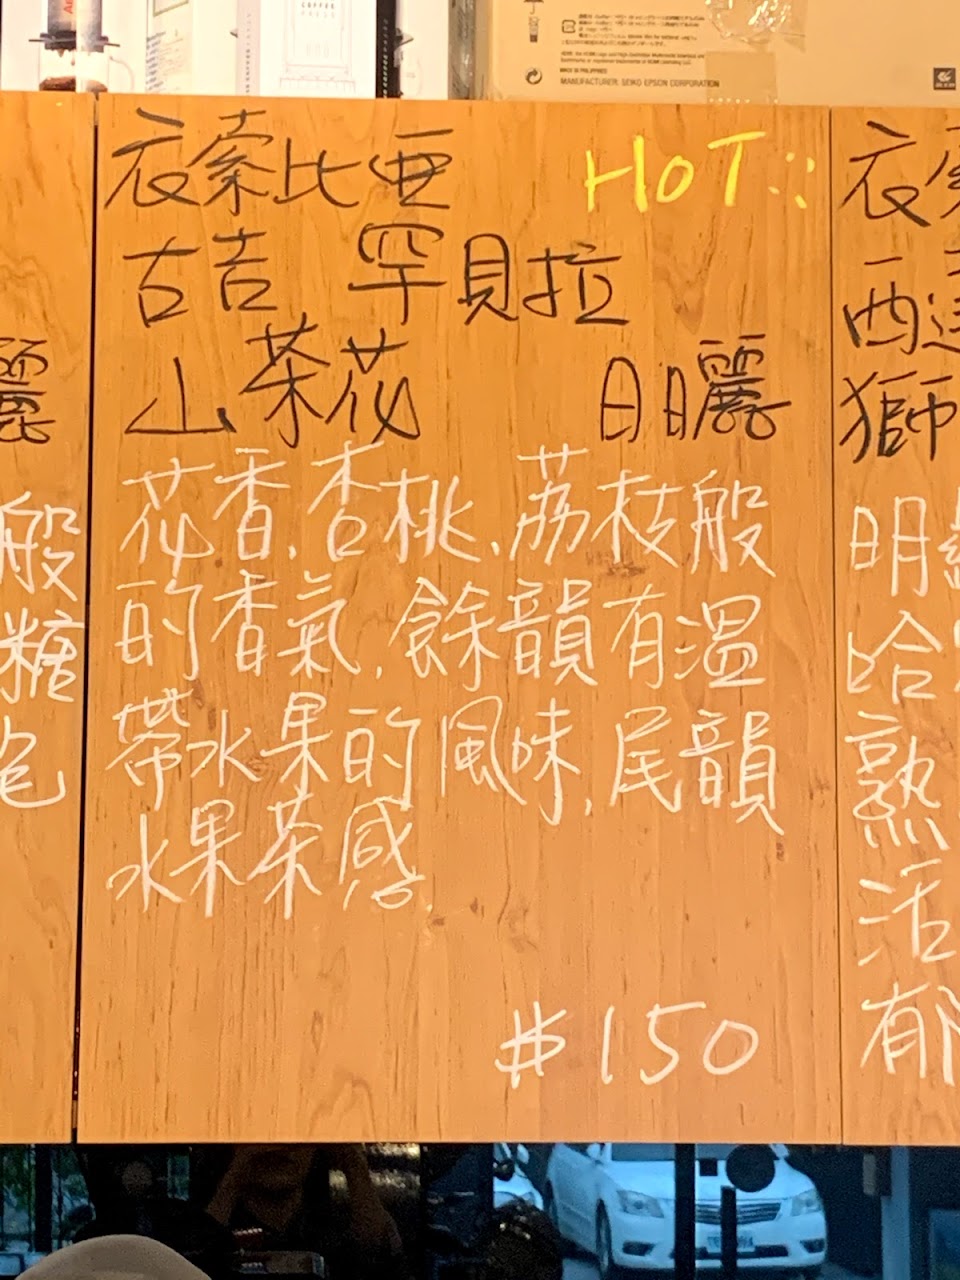 COFFEE
PRESS
MADE IN PHILIPPINES
MANUFACTURER: SEIKO EPSON CORPORATION
衣索比亞
HOT::
古吉 罕貝拉
山茶花 日曬
花香、杏桃、荔枝般
的香氣,餘韻有溫
帶水果的風味,尾韻
水果茶感
$150
麗
般
糖
包
衣索
西達
獅
明
哈
熟
活
有